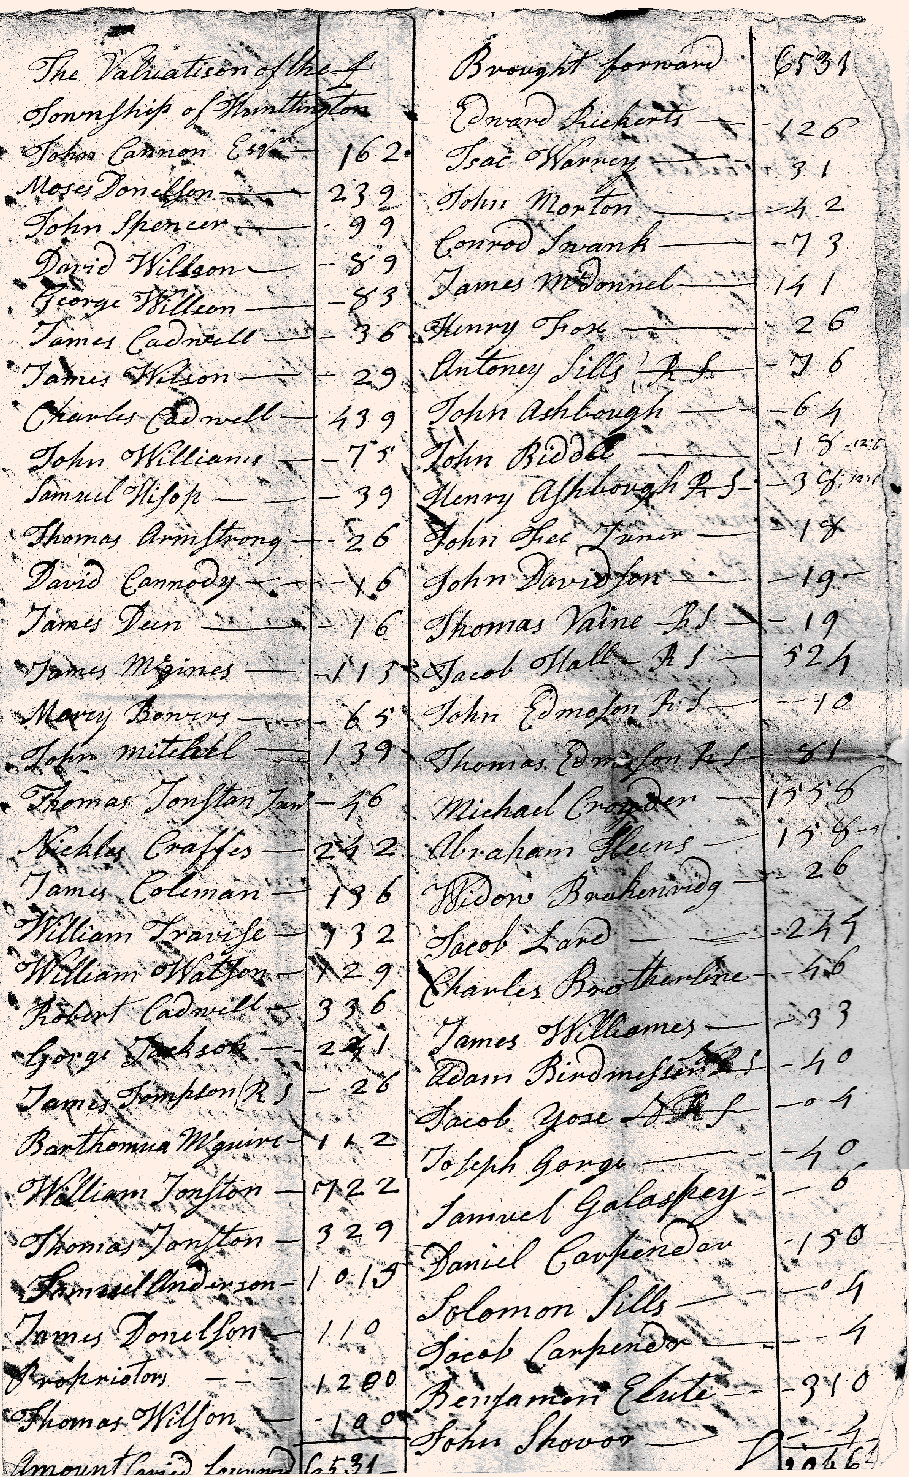 The Valuation of the £
Township of Hunttington
John Cannon Esqr 162
Moses Donelson 239
John Spencer 99
David Willson 89
George Willson 83
James Cadwell 36
James Wilson 29
Charles Cadwell 439
John Williams 75
Samuel Hisop 39
Thomas Armstrong 26
David Cannody 16
James Deen 16
James Mcgines 115
Marcy Bowers 65
John mitchel 139
Thomas Jonston Junr 46
Nicklus Craffes 242
James Coleman 136
William Travise 132
William Watson 129
Robert Cadwell 336
Gorge Jackson 221
James Tompson RS 26
Barthomua Mcguire 112
William Jonston 722
Thomas Jonston 329
Samuel Anderson 1015
James Donelson 110
Propriotors 1200
Thomas Wilson 100
Amount Caried forward 6531
Brought forward 6531
Edward Rickerts 126
Isac Warrey 31
John Morton 42
Conrod Swank 73
James McDonnel 141
Henry Fore 26
Antoney Sills RS 76
John Ashbough 64
John Biddel 18
Henry Ashbough RS 38
John Fee Turner 18
John Davidson 19
Thomas Vaine RS 19
Jacob Hall RS 524
John Edmoson RS 10
Thomas Edmoson RS 81
Michael Crowder 1558
Abraham Heens 158
Widow Brakenridg 26
Jacob Lard 244
Charles Brotherline 46
James Williames 33
Adam Birdmesser RS 40
Jacob Yose RS 04
Joseph Gorge 40
Samuel Galaspey 6
Daniel Carpendar 150
Solomon Sills 04
Jacob Carpender 4
Benjamen Elute 310
John Shovor 4